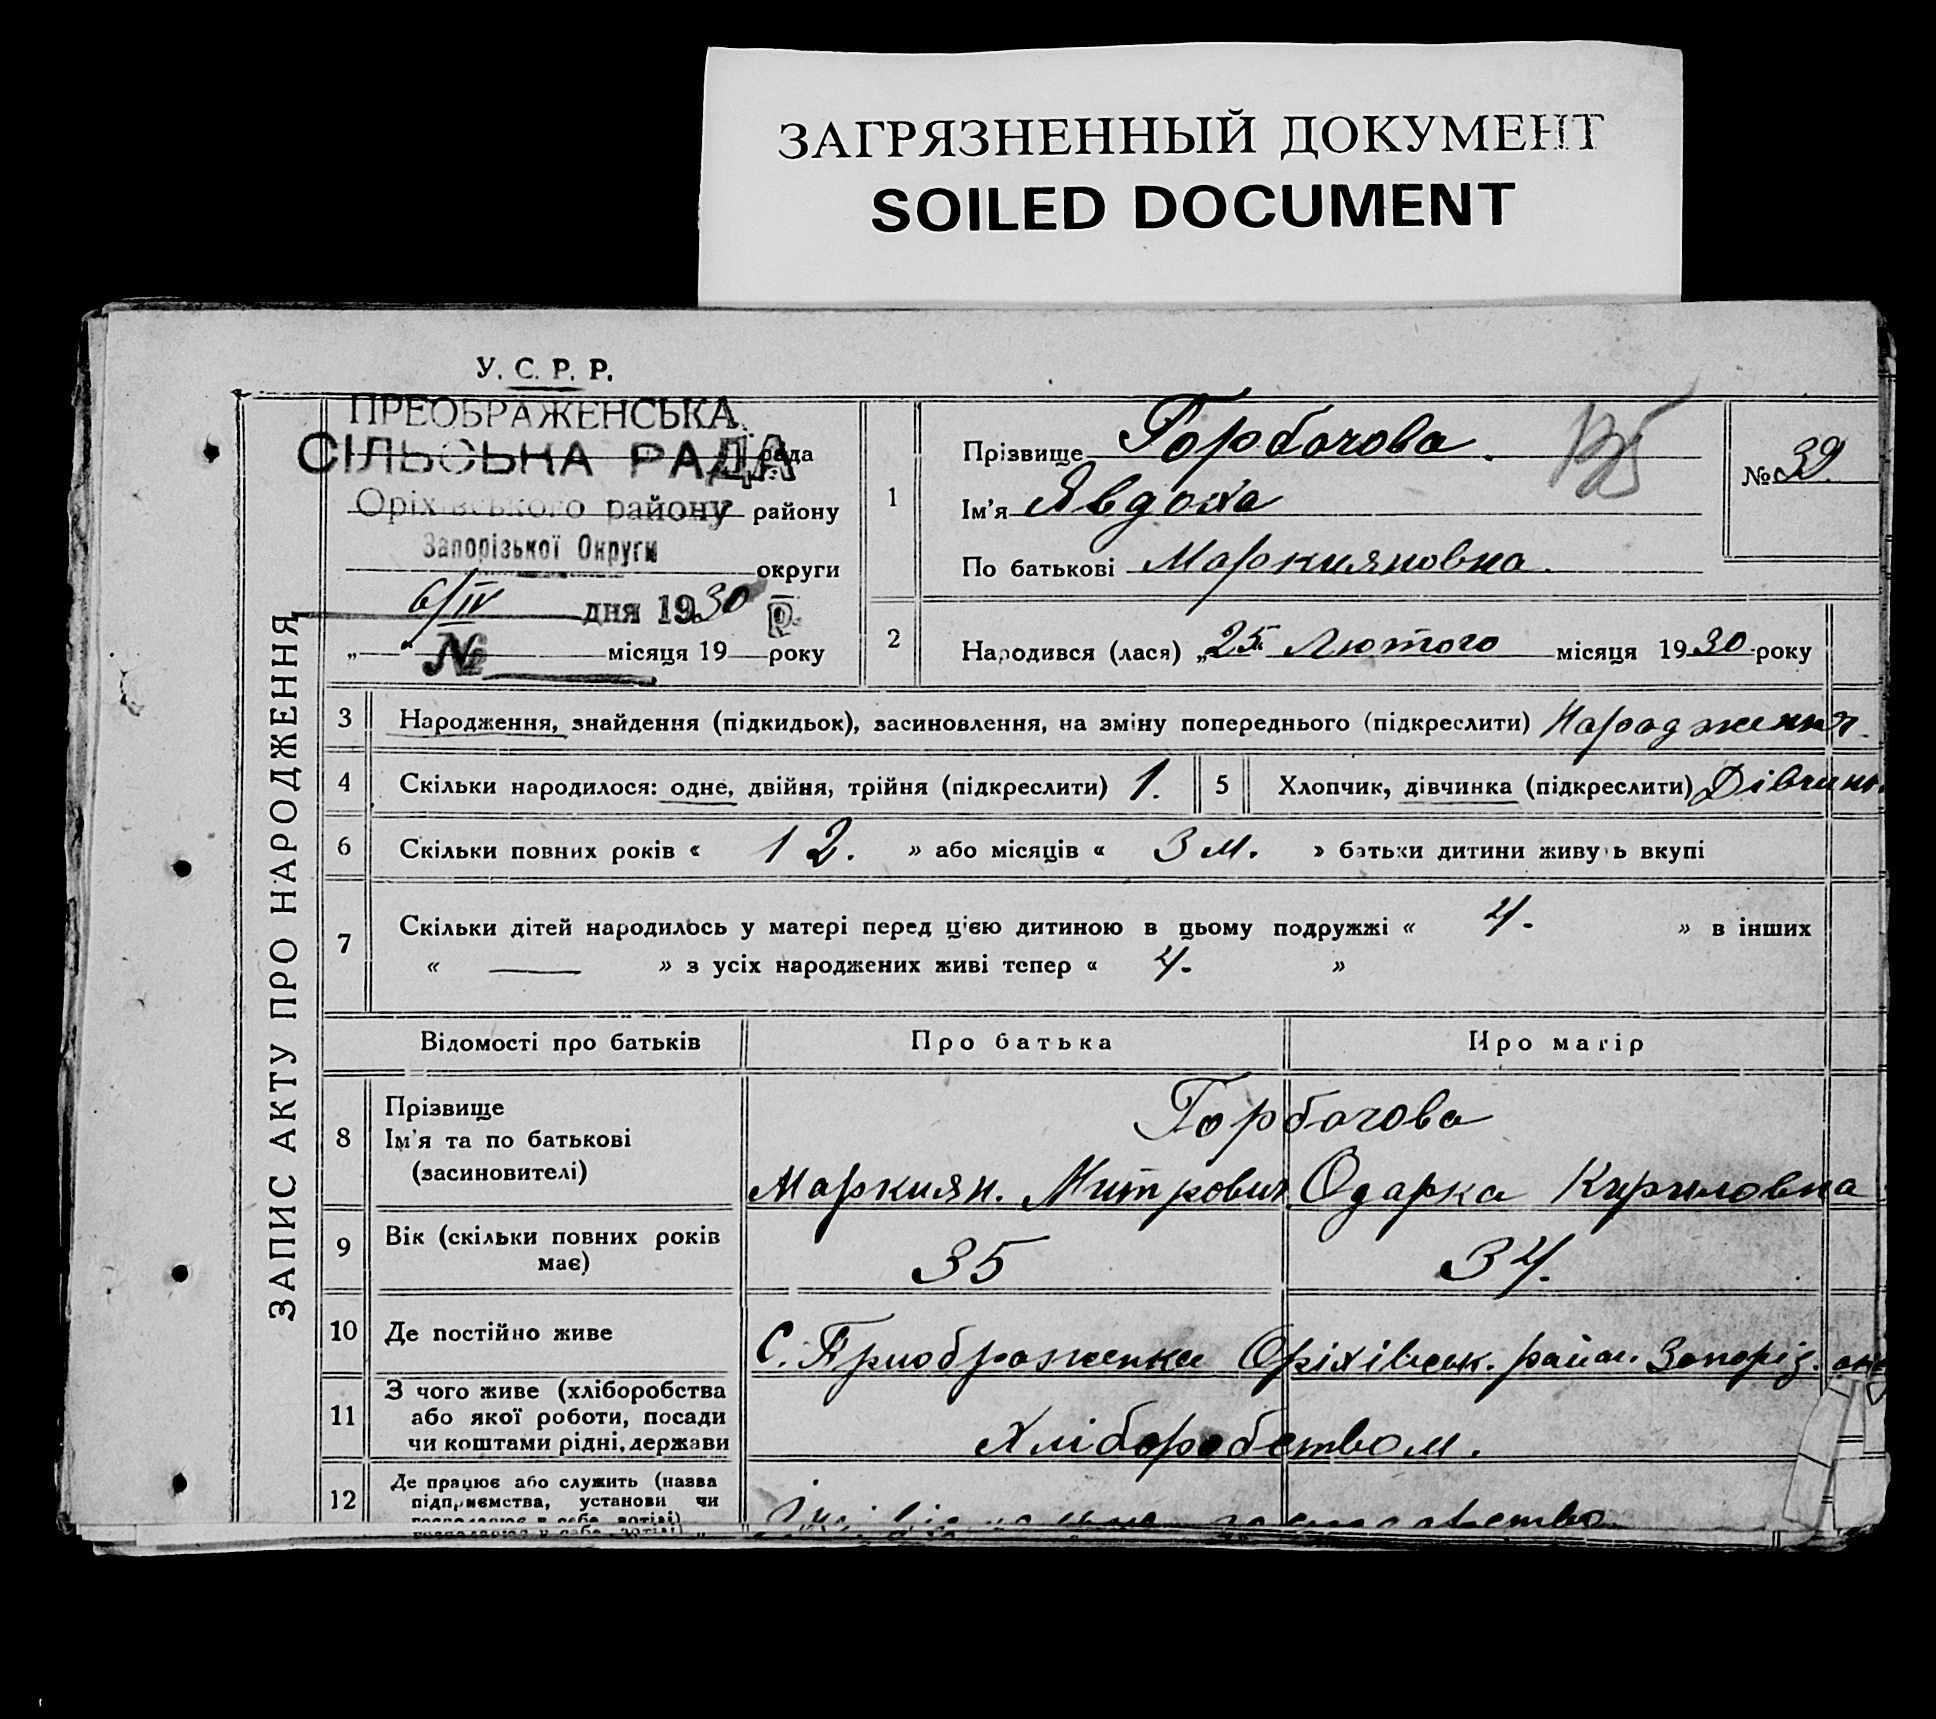 ЗАГРЯЗНЕННЫЙ ДОКУМЕНТ
SOILED DOCUMENT
У. С. Р. Р.
ПРЕОБРАЖЕНСЬКА
СІЛЬСЬКА РАДА рада
Оріхівського району району
Запорізької Округи
округи
6/IV дня 1930 р.
№
„ “ місяця 19 року
ЗАПИС АКТУ ПРО НАРОДЖЕННЯ
1
Прізвище Горбачова.
Ім'я Явдоха
По батькові Маркияновна.
№ 39.
2
Народився (лася) „25. Лютого місяця 1930 року
3 Народження, знайдення (підкидьок), засиновлення, на зміну попереднього (підкреслити) Народження.
4 Скільки народилося: одне, двійня, трійня (підкреслити) 1.
5 Хлопчик, дівчинка (підкреслити) Дівчинк.
6 Скільки повних років « 12. » або місяців « 3 м. » батьки дитини живуть вкупі
7 Скільки дітей народилось у матері перед цією дитиною в цьому подружжі « 4. » в інших
« — » з усіх народжених живі тепер « 4. »
Відомості про батьків Про батька Про матір
8 Прізвище
Ім'я та по батькові
(засиновителі)
Горбачова
Маркиян. Митрович Одарка Кириловна
9 Вік (скільки повних років
має)
35 34.
10 Де постійно живе С. Приображенка Оріхівськ. район. Запоріз. окр
11 З чого живе (хліборобства
або якої роботи, посади
чи коштами рідні, держави
Хліборобством.
12 Де працює або служить (назва
підприємства, установи чи